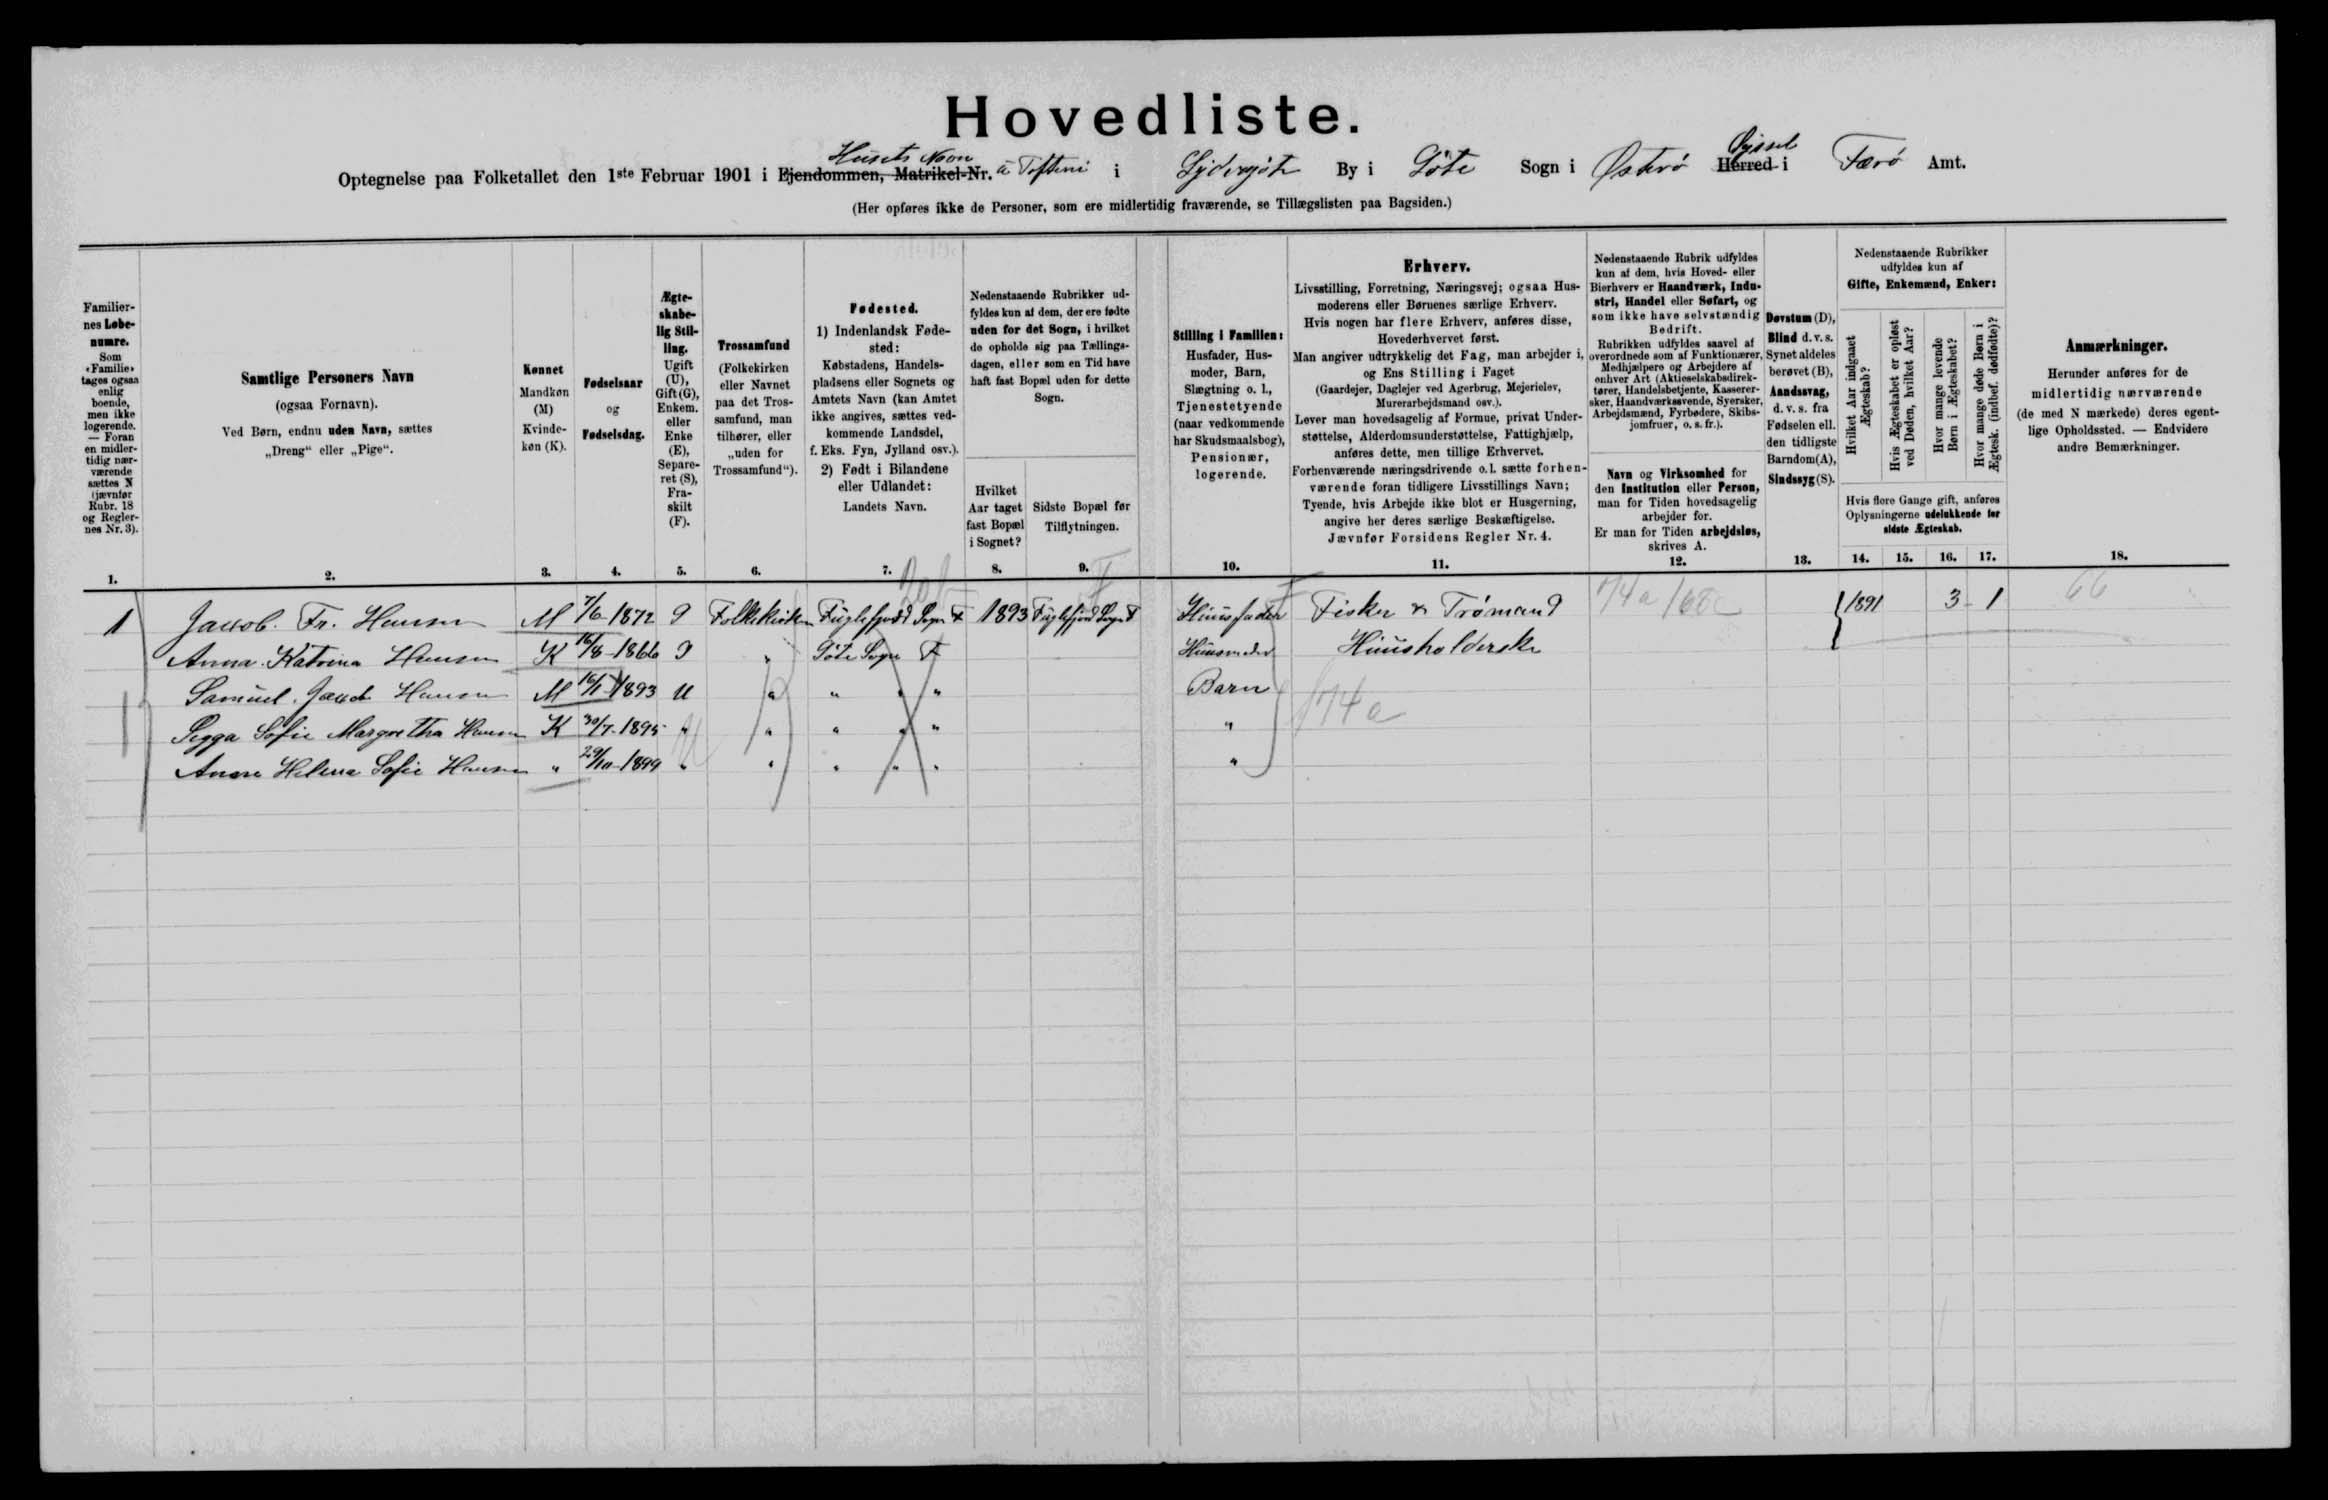 Hovedliste.
Husets Navn Syssel
Optegnelse paa Folketallet den 1ste Februar 1901 i Ejendommen, Matrikel-Nr. á Tofteni i Sydrugöte By i Göte Sogn i Østerö Herred i Færö Amt.
(Her opføres ikke de Personer, som ere midlertidig fraværende, se Tillægslisten paa Bagsiden.)
Familier-
nes Løbe-
numre.
Som
«Familie»
tages ogsaa
enlig
boende,
men ikke
logerende.
— Foran
en midler-
tidig nær-
værende
sættes N
(jævnfør
Rubr. 18
og Regler-
nes Nr. 3).
1.
Samtlige Personers Navn
(ogsaa Fornavn).
Ved Børn, endnu uden Navn, sættes
„Dreng" eller „Pige".
2.
Kønnet
Mandkøn
(M)
Kvinde-
køn (K).
3.
Fødselsaar
og
Fødselsdag.
4.
Ægte-
skabe-
lig Stil-
ling.
Ugift
(U),
Gift (G),
Enkem.
eller
Enke
(E),
Separe-
ret (S),
Fra-
skilt
(F).
5.
Trossamfund
(Folkekirken
eller Navnet
paa det Tros-
samfund, man
tilhører, eller
„uden for
Trossamfund").
6.
Fødested.
1) Indenlandsk Føde-
sted:
Købstadens, Handels-
pladsens eller Sognets og
Amtets Navn (kan Amtet
ikke angives, sættes ved-
kommende Landsdel,
f. Eks. Fyn, Jylland osv.).
2) Født i Bilandene
eller Udlandet:
Landets Navn.
7.
Nedenstaaende Rubrikker ud-
fyldes kun af dem, der ere fødte
uden for det Sogn, i hvilket
de opholde sig paa Tællings-
dagen, eller som en Tid have
haft fast Bopæl uden for dette
Sogn.
Hvilket
Aar taget
fast Bopæl
i Sognet?
8.
Sidste Bopæl før
Tilflytningen.
9.
Stilling i Familien:
Husfader, Hus-
moder, Barn,
Slægtning o. l.,
Tjenestetyende
(naar vedkommende
har Skudsmaalsbog),
Pensionær,
logerende.
10.
Erhverv.
Livsstilling, Forretning, Næringsvej; ogsaa Hus-
moderens eller Børnenes særlige Erhverv.
Hvis nogen har flere Erhverv, anføres disse,
Hovederhvervet først.
Man angiver udtrykkelig det Fag, man arbejder i,
og Ens Stilling i Faget
(Gaardejer, Daglejer ved Agerbrug, Mejerielev,
Murerarbejdsmand osv.).
Lever man hovedsagelig af Formue, privat Under-
støttelse, Alderdomsunderstøttelse, Fattighjælp,
anføres dette, men tillige Erhvervet.
Forhenværende næringsdrivende o. l. sætte forhen-
værende foran tidligere Livsstillings Navn;
Tyende, hvis Arbejde ikke blot er Husgerning,
angive her deres særlige Beskæftigelse.
Jævnfør Forsidens Regler Nr. 4.
11.
Nedenstaaende Rubrik udfyldes
kun af dem, hvis Hoved- eller
Bierhverv er Haandværk, Indu-
stri, Handel eller Søfart, og
som ikke have selvstændig
Bedrift.
Rubrikken udfyldes saavel af
overordnede som af Funktionærer,
Medhjælpere og Arbejdere af
enhver Art (Aktieselskabsdirek-
tører, Handelsbetjente, Kasserer-
sker, Haandværkssvende, Syersker,
Arbejdsmænd, Fyrbødere, Skibs-
jomfruer, o. s. fr.).
Navn og Virksomhed for
den Institution eller Person,
man for Tiden hovedsagelig
arbejder for.
Er man for Tiden arbejdsløs,
skrives A.
12.
Døvstum (D),
Blind d. v. s.
Synet aldeles
berøvet (B),
Aandssvag,
d. v. s. fra
Fødselen ell.
den tidligste
Barndom (A),
Sindssyg (S).
13.
Nedenstaaende Rubrikker
udfyldes kun af
Gifte, Enkemænd, Enker:
Hvilket Aar indgaaet
Ægteskab?
Hvis Ægteskabet er opløst
ved Døden, hvilket Aar?
Hvor mange levende
Børn i Ægteskabet?
Hvor mange døde Børn i
Ægtesk. (indbef. dødfødte)?
Hvis flere Gange gift, anføres
Oplysningerne udelukkende for
sidste Ægteskab.
14. 15. 16. 17.
Anmærkninger.
Herunder anføres for de
midlertidig nærværende
(de med N mærkede) deres egent-
lige Opholdssted. — Endvidere
andre Bemærkninger.
18.
1 Jacob. Fr. Hansen M 7/6 1872 G Folkekirken Fuglefjord Sogn F 1893 Fuglefjord Sogn F Huusfader Fisker & Trømand 74a 168c 1891 3 1 66
Anna Katrina Hansen K 16/8-1866 G " Göte Sogn F Huusmoder Huusholderske
Samuel Jacob Hansen M 16/1 1893 U " " " " Barn 74a
Sigga Sofie Margretha Hansen K 30/7-1895 " " " " " "
Anna Helena Sofie Hansen " 29/10-1899 " " " " " "